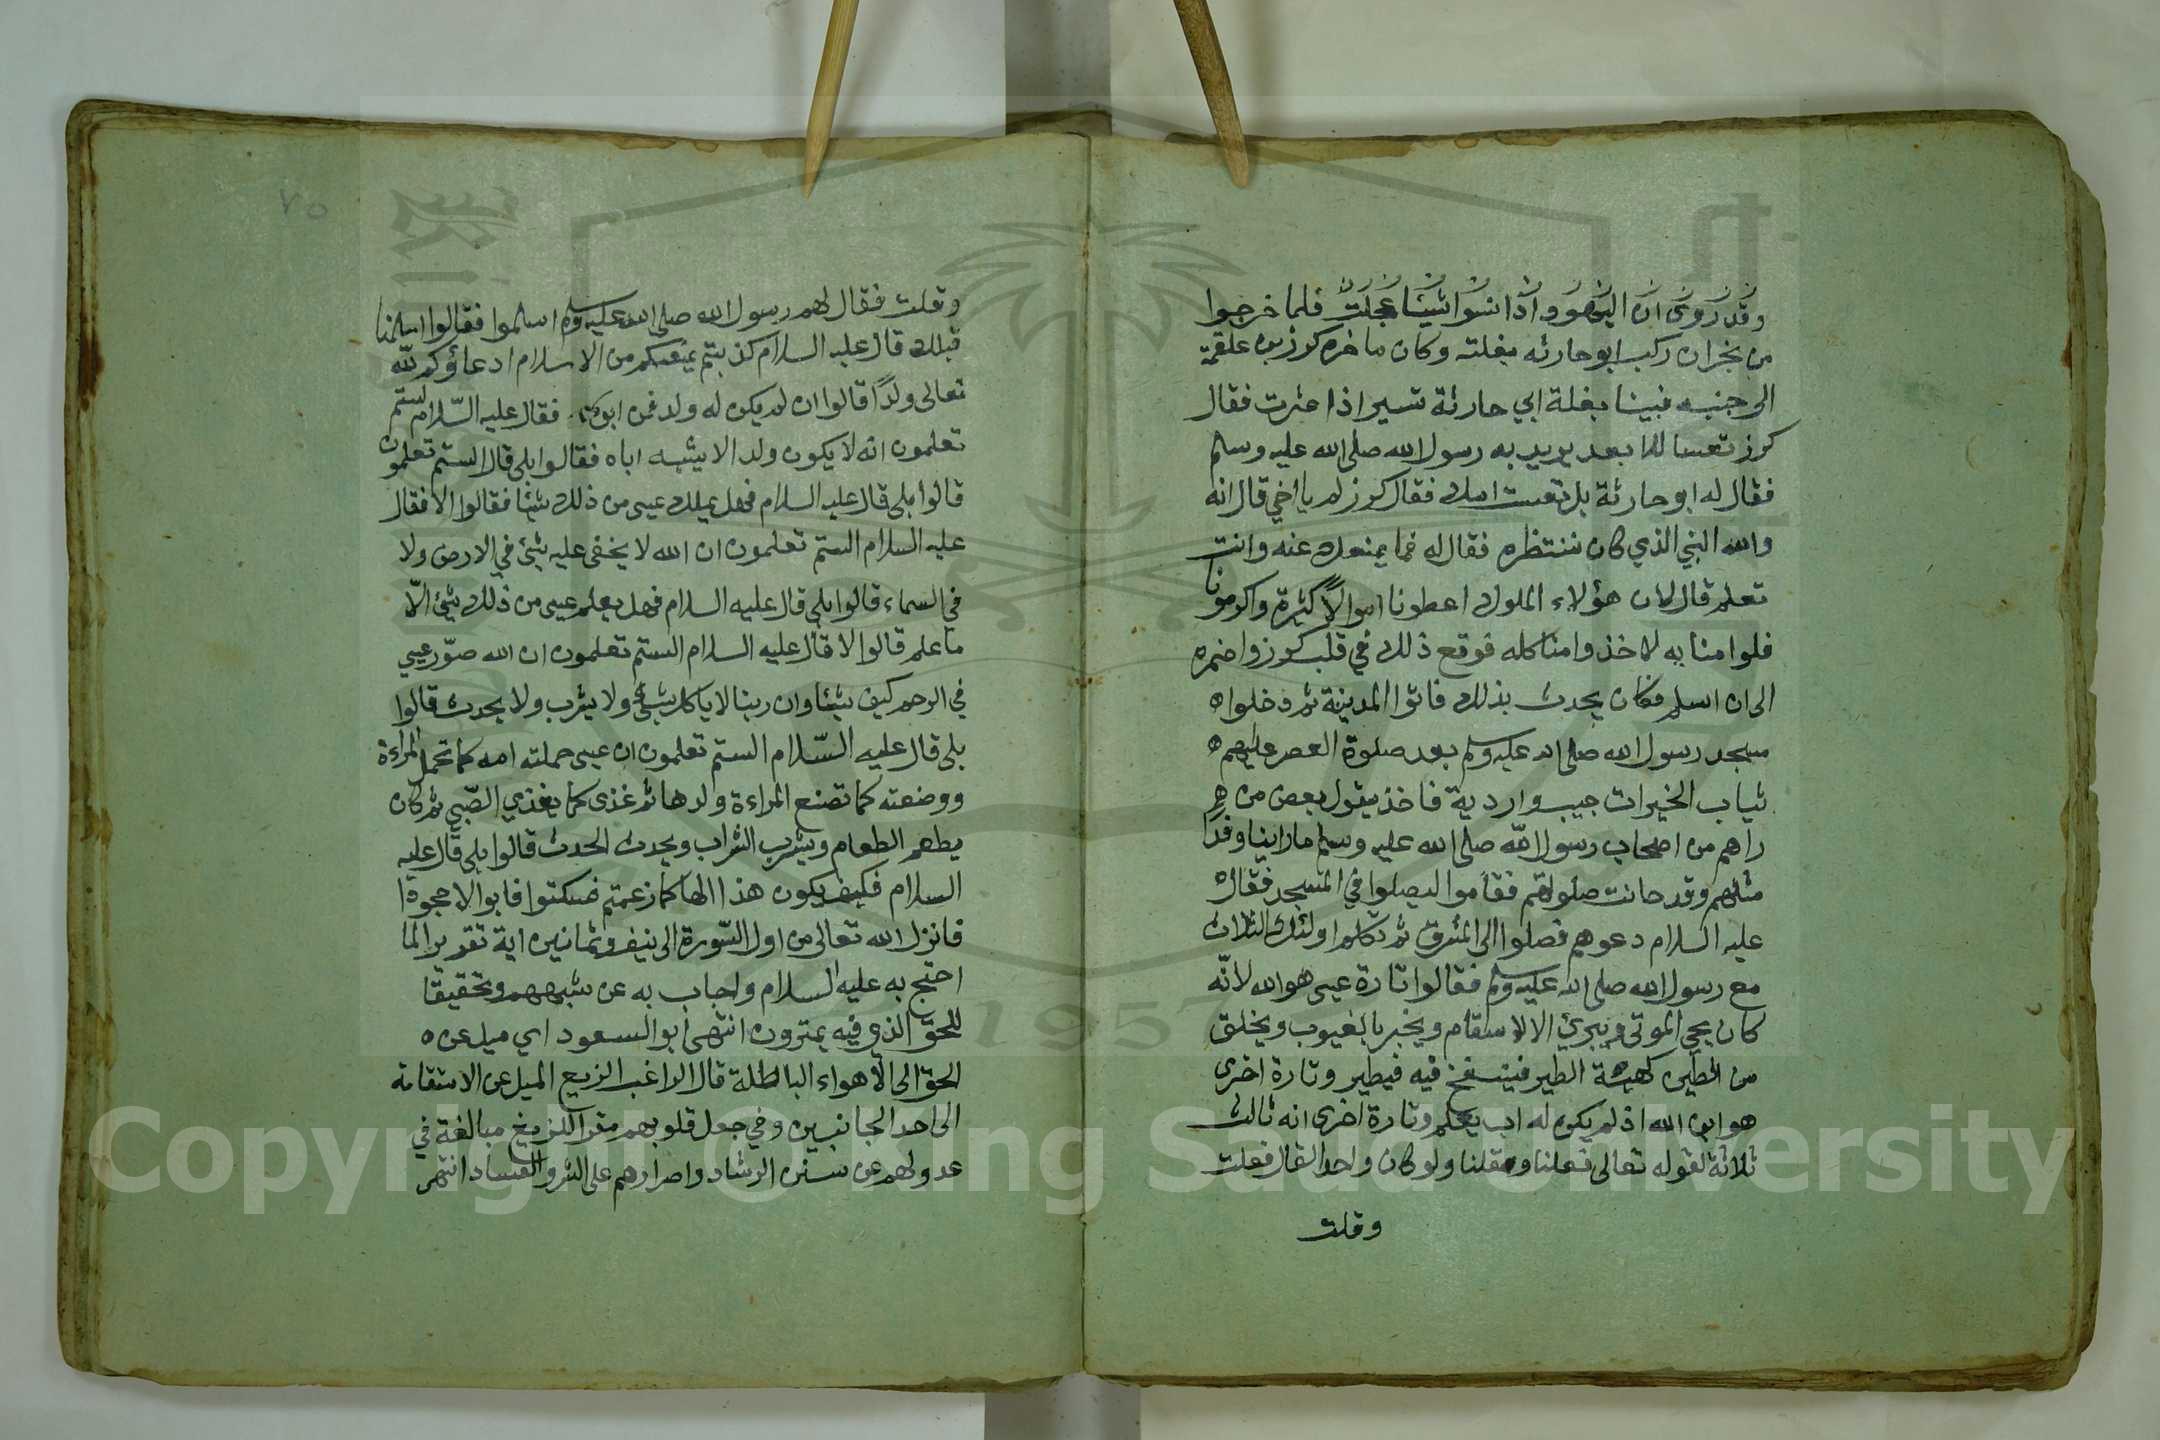 وقد روى ان اليهود اذا نسوا شيئا عجلت فلما خرجوا
من نجران ركب ابو حارثه بغلته وكان ما خره كوز بن علقمة
الى جنبه فبينا بغلة ابي حارثة تسير اذا عثرت فقال
كرز تعسا للابعد يريد به رسول الله صلى الله عليه وسلم
فقال له ابو حارثة بل تعست امك فقال كرز لم يا اخي قال انه
والله النبي الذي كان ننتظره فقال له فما يمنعك عنه وانت
تعلم قال لان هؤلاء الملوك اعطونا اموالاً كثيرة واكرمونا
فلوا منا به لاخذ وامنا كله فوقع ذلك في قلب كوز واضمره
الى ان اسلم فكان يحدث بذلك فاتوا المدينة ثم دخلوا ه
مسجد رسول الله صلى الله عليه وسلم بعد صلوة العصر عليهم ه
ثياب الخيرات جبب واردية فاخذ يقول بعض من هم
راهم من اصحاب رسول الله صلى الله عليه وسلم ما راينا وفدا
مثلهم وقد حانت صلوتهم فقاموا ليصلوا في المسجد فقال ه
عليه السلام دعوهم فصلوا الى المشرق ثم تكلم اولئك الثلاث
مع رسول الله صلى الله عليه وسلم فقالوا تارة عيسى هو الله لانّه
كان يحي الموتى ويبرئ الا الاسقام ويخبر بالغيوب ويخلق
من الطين كهيئة الطير فينفخ فيه فيطير وتارة اخرى
هو ابن الله اذ لم يكن له اب يعلم وتارة اخرى انه ثالث
ثلاثة لقوله تعالى فعلنا وقلنا ولو كان واحدا لقال فعلت
وقلت
٧٥
وقلت فقال لهم رسول الله صلى الله عليه وسلم اسلموا فقالوا اسلمنا
قبلك قال عليه السلام كذبتم يمنعكم من الاسلام ادعاؤكم لله
تعالى ولدًا قالوا ان لم يكن له ولد فمن ابوه فقال عليه السّلام الستم
تعلمون انه لا يكون ولد الا يشبه اباه فقالوا بلى قال الستم تعلمون
قالوا بلى قال عليه السلام فهل يملك عيسى من ذلك شيئا فقالوا لا فقال
عليه السلام الستم تعلمون ان الله لا يخفى عليه شيئ في الارض ولا
في السماء قالوا بلى قال عليه السلام فهل يعلم عيسى من ذلك شيئ الّا
ما علم قالوا لا قال عليه السلام الستم تعلمون ان الله صوّر عيسى
في الرحم كيف شيئا وان ربنا لا ياكل شيئ ولا يشرب ولا يحدث قالوا
بلى قال عليه السّلام الستم تعلمون ان عيسى حملته امه كما تحمل المراءة
ووضعته كما تصنع المراءة ولدها ثم غذى كما يغذي الصّبي ثم كان
يطعم الطعام ويشرب الشراب ويحدث الحدث قالوا بلى قال عليه
السلام فكيف يكون هذا الها كما زعمتم فسكتوا فابوا الا جحودا
فانزل الله تعالى من اول السّورة الى نيف وثمانين اية تقريرا لما
احتج به عليه السلام واجاب به عن شبههم وتحقيقا
للحق الذي فيه يمترون انتهى ابو السعود اي ميل عن ه
الحق الى الاهواء الباطلة قال الراغب الزيع الميل عن الاستقامة
الى احد الجانبين وفي جعل قلوبهم مقرا للزيغ مبالغة في
عدولهم عن سنن الرشاد واصرارهم على الشر والفساد انتهى
Copyright © King Saud University
1957